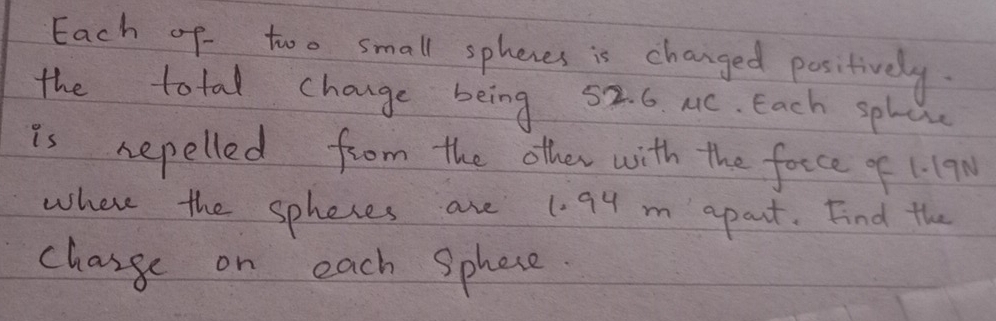 Each of two small spheres is charged positively.
the total charge being 52.6 μC. Each sphere
is repelled from the other with the force of 1.19N
where the spheres are 1.94 m apart. Find the
charge on each sphere.